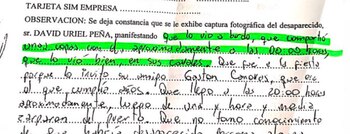 TARJETA SIM EMPRESA
OBSERVACION: Se deja constancia que se le exhibe captura fotográfica del desaparecido,
sr. DAVID URIEL PEÑA, manifestando que lo vio a bordo, que compartió
unas copas con el, aproximadamente a las 00:00 horas,
que lo vio bien, en sus cabales. Que fue a la fiesta
porque lo invito su amigo Gaston Comores, que era
el que cumplia años. Que llego a las 20:00 horas
aproximadamente, luego de una y hora y media
zarparon del puerto. Que no tomo conocimiento
de que habria desaparecido